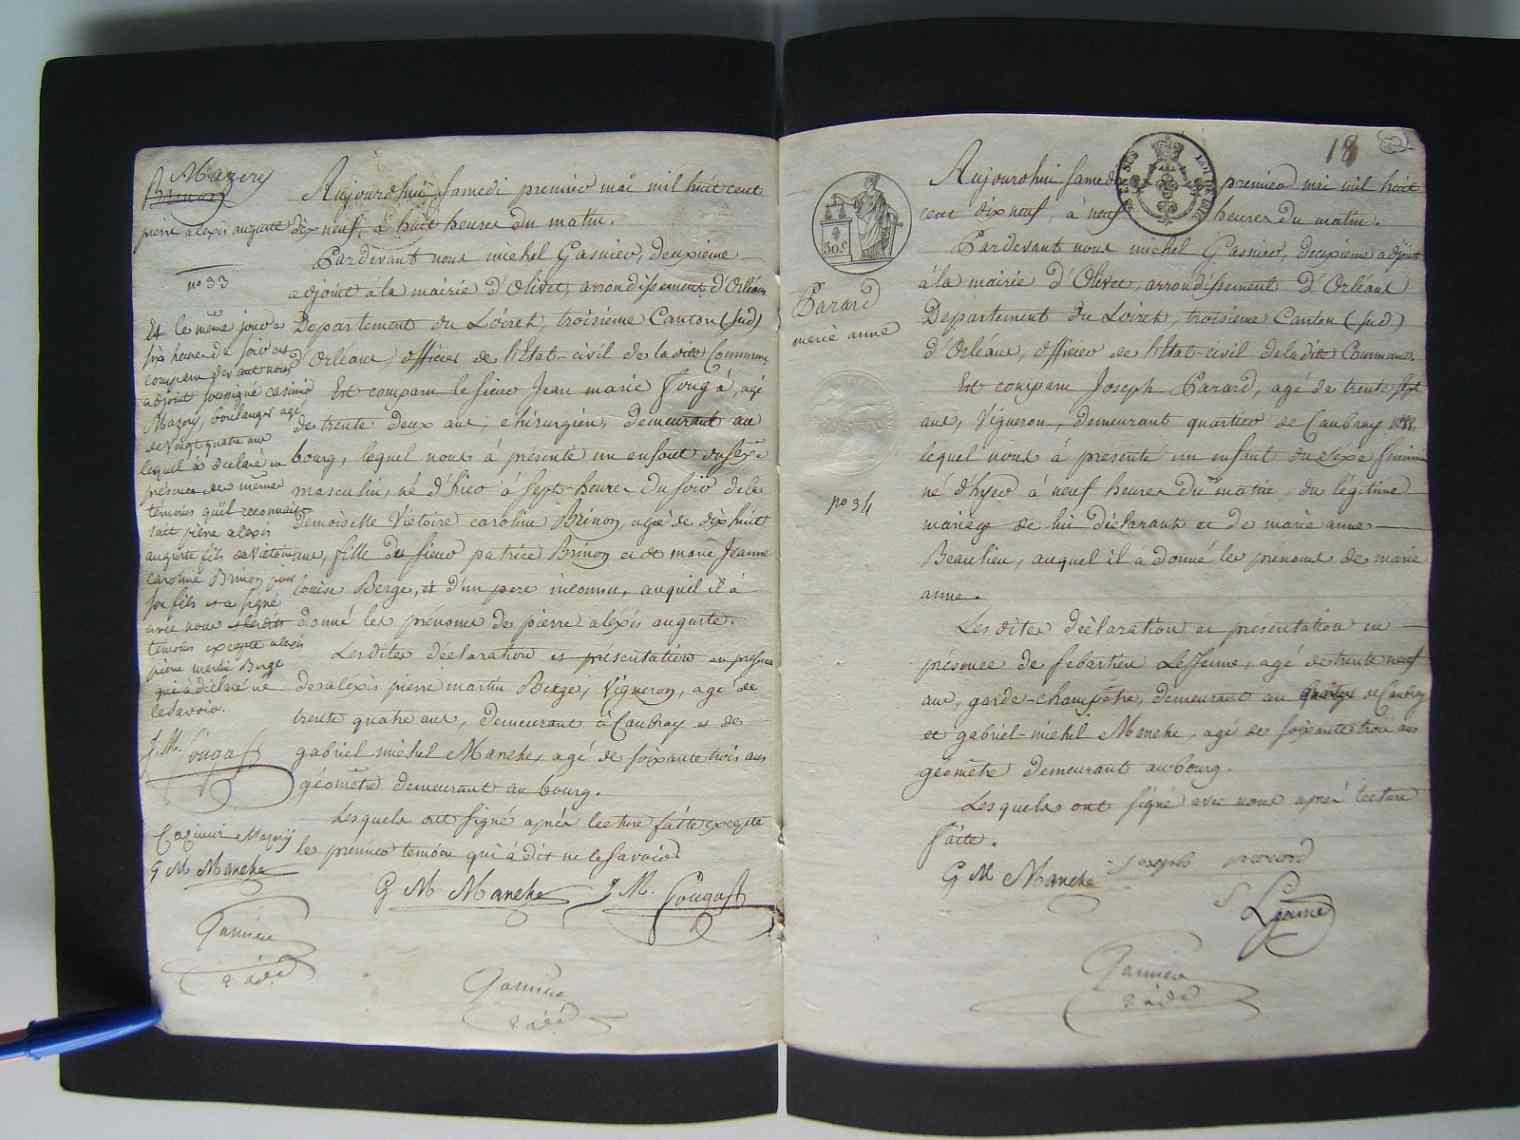 Mazery
Brinon
pierre alexis auguste
no 33
Et le même jour à
six heures du soir est
comparu devant nous
adjoint soussigné casimir
Mazery, boulanger agé
de vingt quatre ans
lequel à déclaré en
présence des mêmes
temoins qu'il reconnait
pierre alexis
auguste fils de Victoire
caroline Brinon pour
son fils et a signé
avec nous et les dits
temoins excepté alexis
pierre martin Berge
qui à déclaré ne
le savoir.
J. M. Fougast
Casimir Mazery
G M Manche
Garnier
2e adj
Aujourdhui samedi premier mai mil huit cent
dix neuf, à huit heures du matin.
Pardevant nous michel Gasnier, deuxième
adjoint à la mairie d'Olivet, arrondissement d'Orléans
Departement du Loiret, troisième Canton (sud)
d'Orléans, officier de l'Etat-civil de la dite Commune
Est comparu le sieur Jean marie Fougá, agé
de trente deux ans, chirurgien, demeurant au
bourg, lequel nous à présenté un enfant du sexe
masculin, né d'hier à sept heures du soir de la
demoiselle Victoire caroline Brinon, agée de dix huit
ans, fille du sieur patrice Brinon et de marie Jeanne
Louise Berge, et d'un pere inconnu, auquel il à
donné les prénoms de pierre alexis auguste.
Les dites déclaration et présentation en présence
des alexis pierre martin Berge, Vigneron, agé de
trente quatre ans, demeurant à Caubray et de
gabriel michel Manche, agé de soixante trois ans
géomètre demeurant au bourg.
Lesquels ont signé après lecture faite excepté
le premier temoin qui à dit ne le savoir
G M Manche J. M. Fougast
Garnier
2e adj
18
Parard
marie anne
no 34
30 c
Aujourdhui samedi premier mai mil huit
cent dix neuf, à neuf heures du matin.
Pardevant nous michel Gasnier, deuxième adjoint
à la mairie d'Olivet, arrondissement d'Orléans
Departement du Loiret, troisième Canton (sud)
d'Orléans, officier de l'Etat-civil de la dite Commune.
Est comparu Joseph Parard, agé de trente sept
ans, Vigneron, demeurant quartier de Caubray
lequel nous à présenté un enfant du sexe féminin
né d'hyer à neuf heures du matin, du légitime
mariage de lui déclarant et de marie anne
Beaulieu, auquel il a donné les prénoms de marie
anne.
Les dites déclaration et présentation en
présence de sebastien LeJeune, agé de trente neuf
ans, garde-champêtre, demeurant au quartier de Caubray
et gabriel-michel Manche, agé de soixante trois ans
géomètre demeurant au bourg.
Lesquels ont signé avec nous après lecture
faite.
G M Manche Joseph parard
S Lejeune
Garnier
2e adj